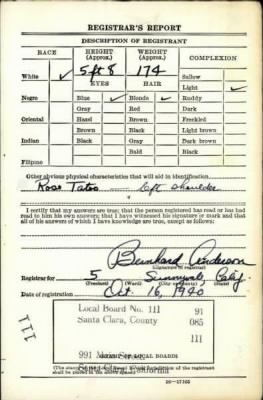 REGISTRAR'S REPORT
DESCRIPTION OF REGISTRANT
RACE HEIGHT (Approx.) WEIGHT (Approx.) COMPLEXION
White ✓ 5 ft 8 174 Sallow
EYES HAIR Light ✓
Negro Blue ✓ Blonde ✓ Ruddy
Gray Red Dark
Oriental Hazel Brown Freckled
Brown Black Light brown
Indian Black Gray Dark brown
Bald Black
Filipino
Other obvious physical characteristics that will aid in identification
Rose Tatoo left shoulder
I certify that my answers are true; that the person registered has read or has had
read to him his own answers; that I have witnessed his signature or mark and that
all of his answers of which I have knowledge are true, except as follows:
Bernhard Anderson
(Signature of registrar)
Registrar for 5 Sunnyvale, Calif
(Precinct) (Ward) (City or county) (State)
Date of registration Oct. 16, 1940
Local Board No. 111 91
Santa Clara, County 085
111
111
991
LOCAL BOARDS
16—17105